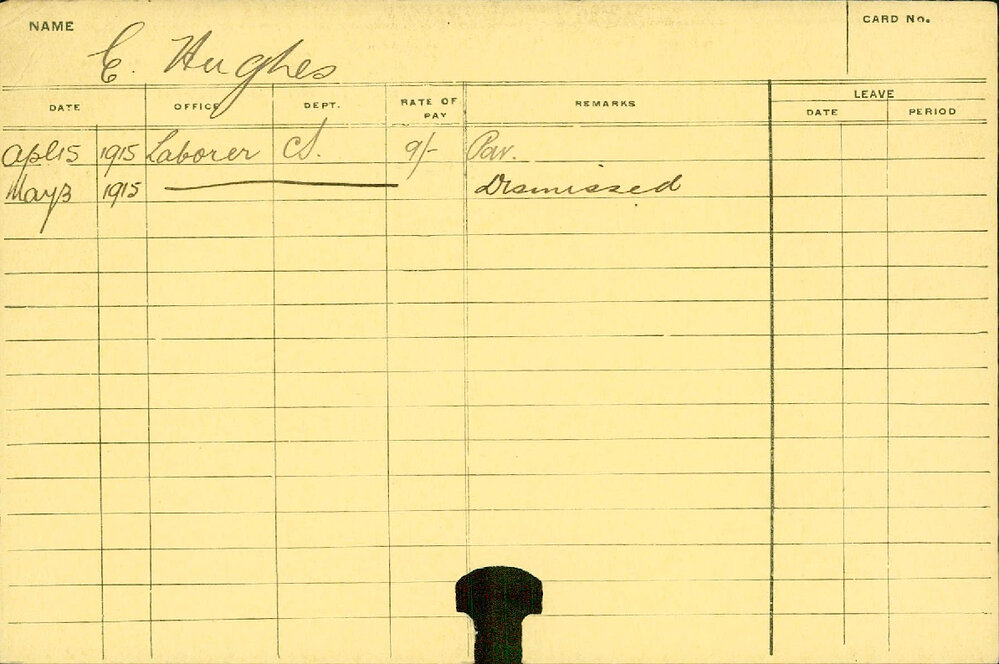 NAME E. Hughes CARD No.
DATE OFFICE DEPT. RATE OF PAY REMARKS LEAVE
DATE PERIOD
Apl 15 1915 Laborer CS. 9/- Pav.
May 3 1915 Dismissed